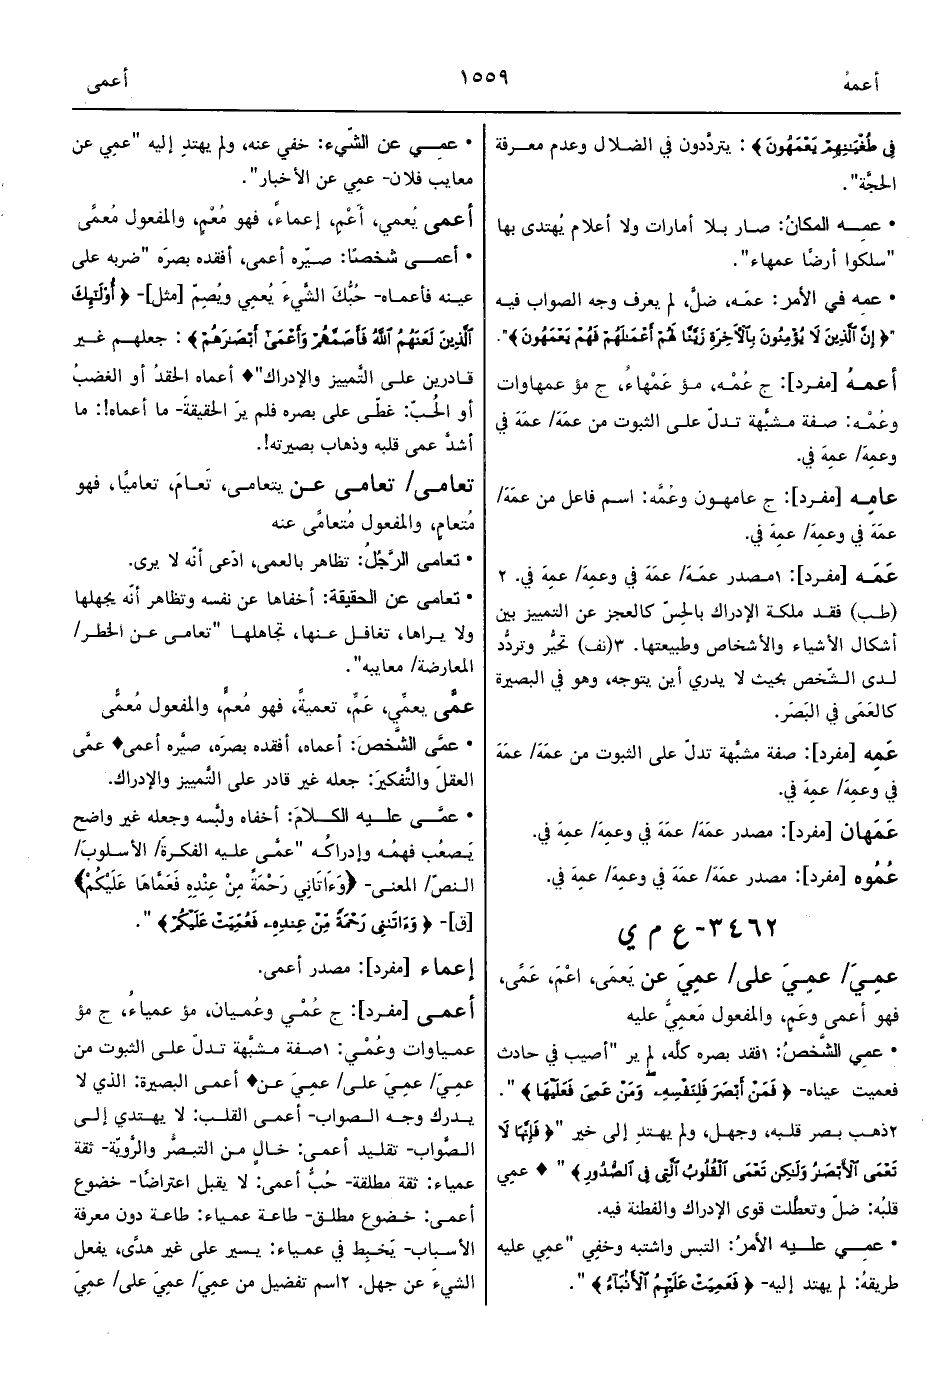 أعمهُ
١٥٥٩
أعمى
فِي طُغْيَانِهِمْ يَعْمَهُونَ ﴾ : يتردَّدون في الضلال وعدم معرفة
الحجَّة".
• عمِـه المكانُ: صار بلا أمارات ولا أعلام يُهتدى بها
"سلكوا أرضًا عمهاء".
• عمِه في الأمر: عمَه، ضلَّ، لم يعرف وجه الصواب فيه
"﴿ إِنَّ ٱلَّذِينَ لَا يُؤْمِنُونَ بِٱلْآخِرَةِ زَيَّنَّا لَهُمْ أَعْمَـٰلَهُمْ فَهُمْ يَعْمَهُونَ ﴾".
أعمهُ [مفرد]: ج عُمْه، مؤ عَمْهاءُ، ج مؤ عمهاوات
وعُمْه: صفة مشبَّهة تدلّ على الثبوت من عمَهَ/ عمَهَ في
وعمِهَ/ عمِهَ في.
عامِه [مفرد]: ج عامهون وعُمَّه: اسم فاعل من عمَهَ/
عمَهَ في وعمِهَ/ عمِهَ في.
عَمَه [مفرد]: ١مصدر عمَهَ/ عمَهَ في وعمِهَ/ عمِهَ في. ٢
(طب) فقد ملكة الإدراك بالحِسّ كالعجز عن التمييز بين
أشكال الأشياء والأشخاص وطبيعتها. ٣(نف) تحيُّر وتردُّد
لدى الشَّخص بحيث لا يدري أين يتوجه، وهو في البصيرة
كالعَمَى في البَصَر.
عَمِه [مفرد]: صفة مشبَّهة تدلّ على الثبوت من عمَهَ/ عمَهَ
في وعمِهَ/ عمِهَ في.
عَمَهان [مفرد]: مصدر عمَهَ/ عمَهَ في وعمِهَ/ عمِهَ في.
عُمُوه [مفرد]: مصدر عمَهَ/ عمَهَ في وعمِهَ/ عمِهَ في.
٣٤٦٢- ع م ي
عمِيَ/ عمِيَ على/ عمِيَ عن يَعمَى، اعْمَ، عَمًى،
فهو أعمى وعَمٍ، والمفعول مَعمِيٌّ عليه
• عمِي الشَّخصُ: ١فقد بصره كلَّه، لم ير "أصيب في حادث
فعميت عيناه- ﴿ فَمَنْ أَبْصَرَ فَلِنَفْسِهِۦ وَمَنْ عَمِيَ فَعَلَيْهَا ﴾ ".
٢ذهب بصر قلبه، وجهل، ولم يهتد إلى خير "﴿ فَإِنَّهَا لَا
تَعْمَى ٱلْأَبْصَـٰرُ وَلَـٰكِن تَعْمَى ٱلْقُلُوبُ ٱلَّتِي فِي ٱلصُّدُورِ ﴾ " ♦ عمِي
قلبُه: ضلّ وتعطَّلت قوى الإدراك والفطنة فيه.
• عمِـي عليـه الأمرُ: التبس واشتبه وخفِي "عمِي عليه
طريقهُ: لم يهتد إليه- ﴿ فَعَمِيَتْ عَلَيْهِمُ ٱلْأَنۢبَآءُ ﴾ ".
• عمِـي عن الشَّيء: خفي عنه، ولم يهتدِ إليه "عمِي عن
معايب فلان- عمِي عن الأخبار".
أعمى يُعمي، أَعْمِ، إعماءً، فهو مُعْمٍ، والمفعول مُعمًى
• أعمـى شخصًا: صيّره أعمى، أفقده بصرَه "ضربه على
عينه فأعماه- حُبُّكَ الشَّيءَ يُعمِي ويُصِمّ [مثل]- ﴿ أُوْلَـٰٓئِكَ
ٱلَّذِينَ لَعَنَهُمُ ٱللَّهُ فَأَصَمَّهُمْ وَأَعْمَىٰٓ أَبْصَـٰرَهُمْ ﴾ : جعلهم غير
قادرين على التَّمييز والإدراك"♦ أعماه الحقدُ أو الغضبُ
أو الحُبّ: غطّى على بصره فلم يرَ الحقيقةَ- ما أعماه!: ما
أشدَّ عمى قلبه وذهاب بصيرته!.
تعامى/ تعامى عـن يتعامى، تَعـامَ، تعاميًا، فهو
مُتعامٍ، والمفعول مُتعامًى عنه
• تعامى الرَّجُلُ: تظاهر بالعمى، ادّعى أنّه لا يرى.
• تعامى عن الحقيقة: أخفاها عن نفسه وتظاهر أنّه يجهلها
ولا يراها، تغافل عنها، تجاهلها "تعامى عن الخطر/
المعارضة/ معايبه".
عمَّى يعمِّي، عَمِّ، تعميةً، فهو مُعمٍّ، والمفعول مُعمًّى
• عمَّى الشَّخصَ: أعماه، أفقده بصرَه، صيَّره أعمى♦ عمَّى
العقلَ والتَّفكيرَ: جعله غير قادر على التَّمييز والإدراك.
• عمَّـى عليـه الكـلامَ: أخفاه ولبَّسه وجعله غير واضح
يَصعُب فهمُه وإدراكُه "عمَّى عليه الفكرةَ/ الأسلوبَ/
النصّ/ المعنى- ﴿وَءَاتَانِي رَحْمَةً مِنْ عِنْدِهِ فَعَمَّاهَا عَلَيْكُمْ﴾
[ق]- ﴿ وَءَاتَىٰنِي رَحْمَةً مِّنْ عِندِهِۦ فَعُمِّيَتْ عَلَيْكُمْ ﴾ ".
إعماء [مفرد]: مصدر أعمى.
أعمـى [مفرد]: ج عُمْي وعُميان، مؤ عمياءُ، ج مؤ
عمياوات وعُمْي: ١صفة مشبَّهة تدلّ على الثبوت من
عمِيَ/ عمِيَ على/ عمِيَ عن♦ أعمى البصيرة: الذي لا
يدرك وجه الصواب- أعمى القلب: لا يهتدي إلى
الصَّواب- تقليد أعمى: خالٍ من التبصُّر والرَّويّة- ثقة
عمياء: ثقة مطلقة- حُبٌّ أعمى: لا يقبل اعتراضًا- خضوع
أعمى: خضوع مطلق- طاعة عمياء: طاعة دون معرفة
الأسباب- يَخبِط في عمياء: يسير على غير هدًى، يفعل
الشيءَ عن جهل. ٢اسم تفضيل من عمِيَ/ عمِيَ على/ عمِيَ